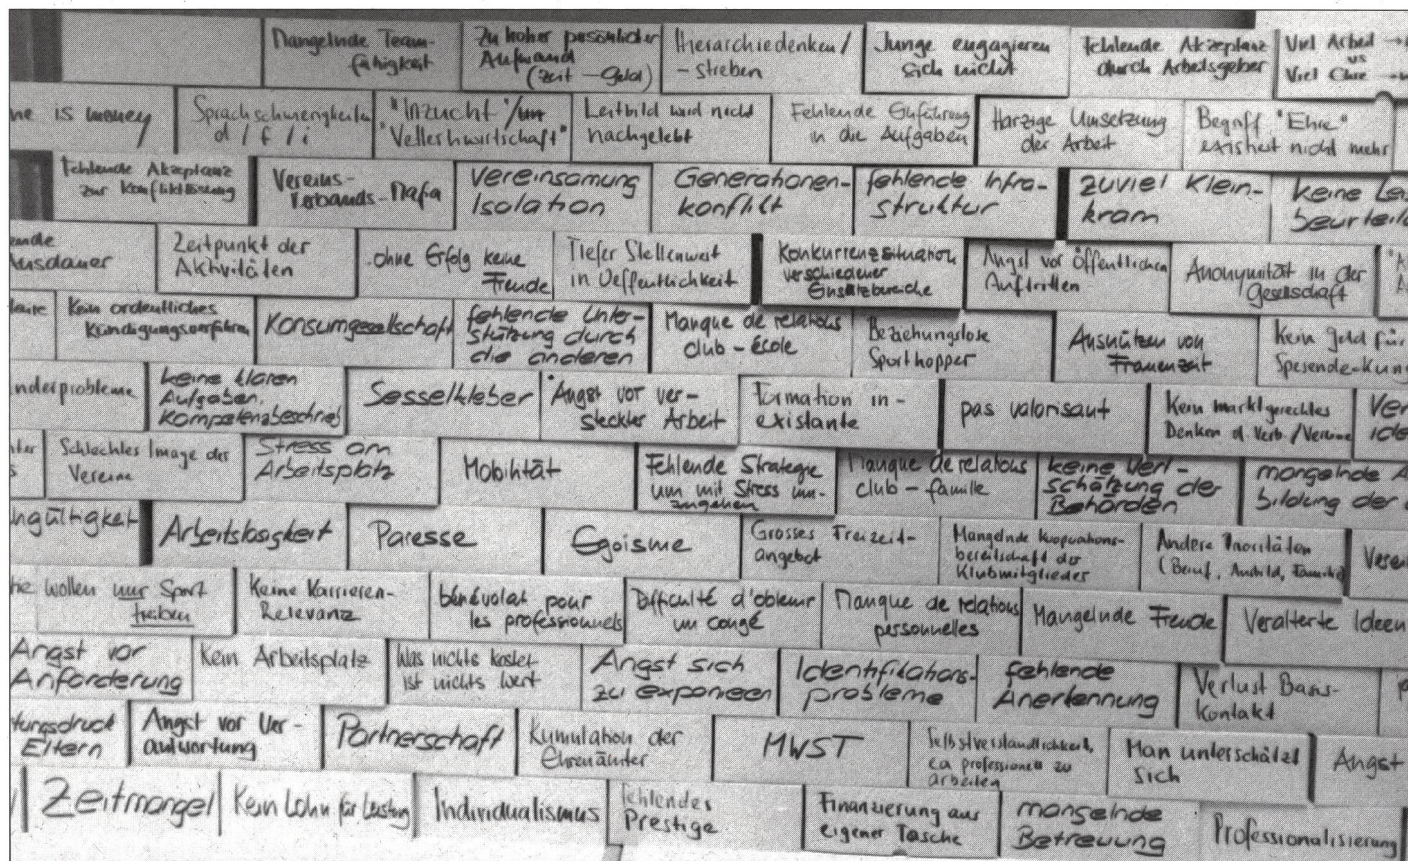 Mangelnde Team-
fähigkeit
Zu hoher persönlicher
Aufwand
(Zeit – Geld)
Hierarchiedenken/
- streben
Junge engagieren
sich nicht
Fehlende Akzeptanz
durch Arbeitsgeber
Viel Arbeit →
vs
Viel Ehre →
is money
Sprachschwierigkeiten
d / f / i
"Inzucht"/
"Vetterliwirtschaft"
Leitbild wird nicht
nachgelebt
Fehlende Einführung
in die Aufgaben
Harzige Umsetzung
der Arbeit
Begriff "Ehre"
existiert nicht mehr
Fehlende Akzeptanz
zur Konfliktlösung
Vereins-
Verbands-Mafia
Vereinsamung
Isolation
Generationen-
konflikt
fehlende Infra-
struktur
zuviel Klein-
kram
keine Lei
beurteil
ende
Ausdauer
Zeitpunkt der
Aktivitäten
ohne Erfolg keine
Freude
Tiefer Stellenwert
in Oeffentlichkeit
Konkurrenzsituation
verschiedener
Einsatzbereiche
Angst vor öffentlichen
Auftritten
Anonymität in der
Gesellschaft
Kein ordentliches
Kündigungsverfahren
Konsumgesellschaft
fehlende Unter-
stützung durch
die anderen
Manque de relations
club – école
Beziehungslose
Sporthopper
Ausnützen von
Frauenzeit
Kein Geld für
nderprobleme
keine klaren
Aufgaben,
Kompetenzbeschrieb
Sesselkleber
Angst vor ver-
steckter Arbeit
Formation in-
existante
pas valorisant
Kein marktgerechtes
Denken d. Verb./Vereine
Schlechtes Image der
Vereine
Stress am
Arbeitsplatz
Mobilität
Fehlende Strategie
um mit Stress um-
zugehen
Manque de relations
club – famille
keine Wert-
schätzung der
Behörden
mangelnde A
bildung der
ngültigkeit
Arbeitslosigkeit
Paresse
Egoisme
Grosses Freizeit-
angebot
Mangelnde Kooperations-
bereitschaft der
Klubmitglieder
Andere Prioritäten
(Beruf, Ausbild, Familie)
Verein
wollen nur Sport
treiben
Keine Karrieren-
Relevanz
bénévolat pour
les professionnels
Difficulté d'obtenir
un congé
Manque de relations
personnelles
Mangelnde Freude
Veralterte Ideen
Angst vor
Anforderung
Kein Arbeitsplatz
Was nichts kostet
ist nichts wert
Angst sich
zu exponieren
Identifikations-
probleme
fehlende
Anerkennung
Verlust Basis-
kontakt
tungsdruck
Eltern
Angst vor Ver-
antwortung
Partnerschaft
Kumulation der
Ehrenämter
MWST
Selbstverständlichkeit,
professionell zu
arbeiten
Man unterschätzt
sich
Angst
Zeitmangel
Kein Lohn für Leistung
Individualismus
fehlendes
Prestige
Finanzierung aus
eigener Tasche
mangelnde
Betreuung
Professionalisierung